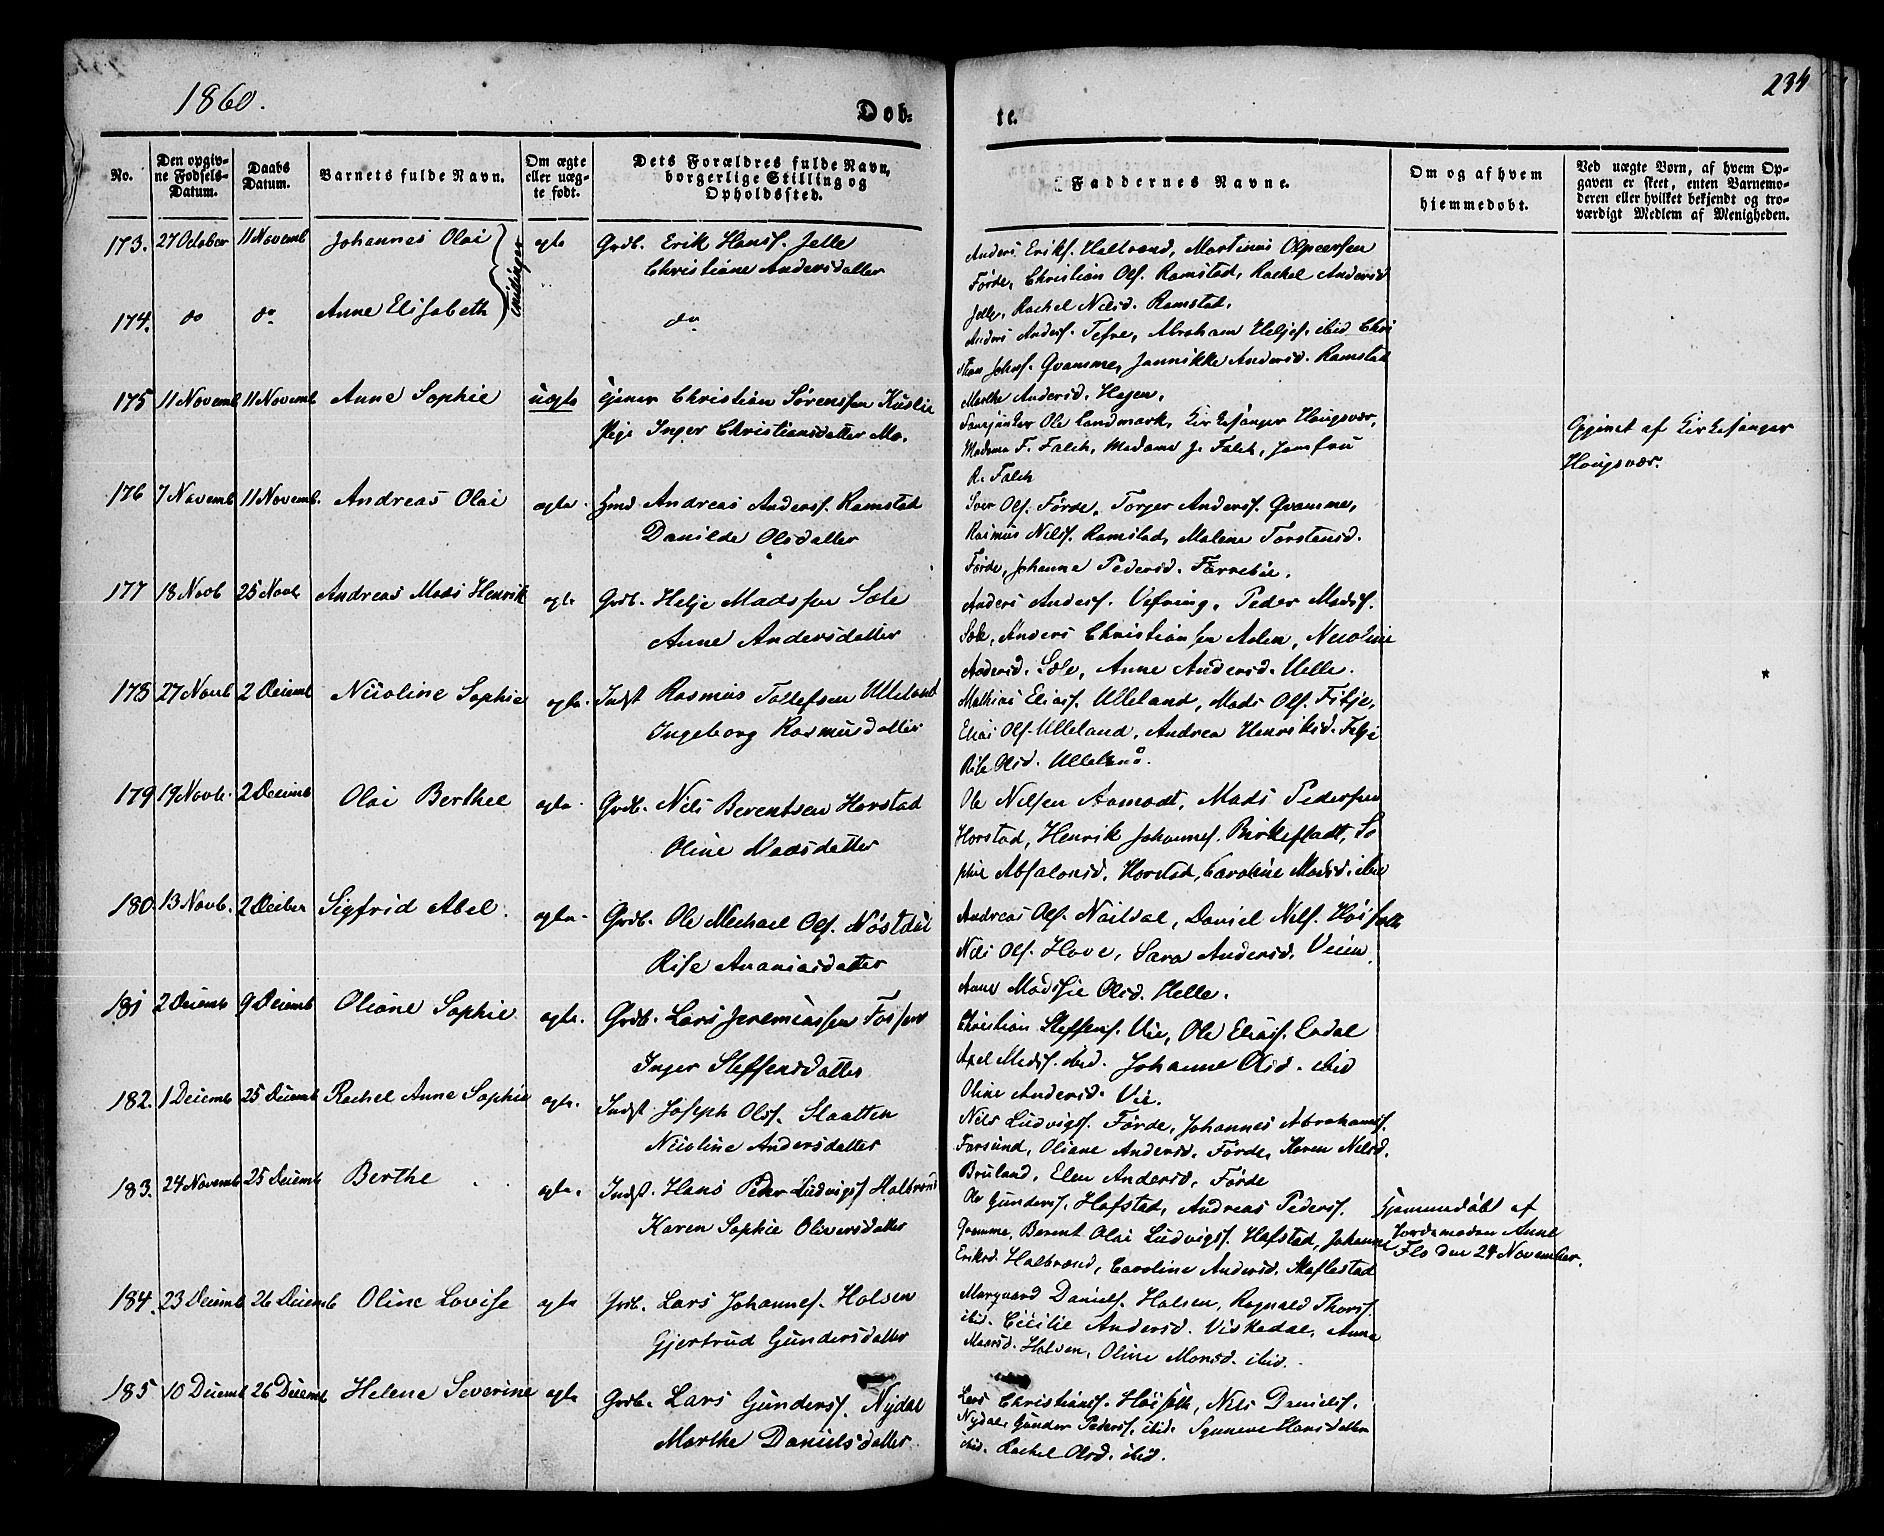 1860.
Døb-
te.
234
No.
Den opgiv-
ne Fødsels-
Datum.
Daabs
Datum.
Barnets fulde Navn.
Om ægte
eller uæg-
te født.
Dets Forældres fulde Navn,
borgerlige Stilling og
Opholdssted.
Faddernes Navne.
Om og af hvem
hjemmedøbt.
Ved uægte Børn, af hvem Op-
gaven er skeet, enten Barnemo-
deren eller hvilket bekjendt og tro-
værdigt Medlem af Menigheden.
173. 27 October 11 Novemb Johannes Olai ægte Grdb. Erik Hansf. Jelle
Christiane Andersdatter
Anders Eriksf. Halbrend, Martinus
Førde, Christian Olsf. Ramstad, Rachel Andersd
Jelle, Rachel Nilsd. Ramstad.
tvillinger
174. do do Anne Elisabeth do
Anders Andersf. Tefre, Abraham Heljesf. ibid Chri
stian Johsf. Qvamme, Jannikke Andersd. Ramstad
Marthe Andersd. Hafen.
175 11 Novemb 11 Novemb Anne Sophie uægte Tjener Christian Sørenssen
Pige Inger Christiansdatter Mo.
Ole Landmark, Kirkesanger Hougsvær,
Madame F. Falch, Madame J. Falch, Jomfru
R. Falch
Opgivet af Kirkesanger
Hougsvær.
176 7 Novemb 11 Novemb. Andreas Olai ægte. Hmd Andreas Andersf. Ramstad
Danilde Olsdatter
Siver Olsf. Førde, Torger Andersf. Qvamme,
Rasmus Nilsf. Ramstad, Malene Torstensd.
Førde, Johanne Pedersd. Farsebøe.
177 18 Novb 25 Novb Andreas Mads Henrik ægte Grdb. Helje Madssen Sole
Anne Andersdatter
Anders Andersf. Vefring, Peder Madsf.
Sole, Anders Christianssen Aalen, Nicoline
Andersd. Sole, Anne Andersd. Helle.
178 27 Novb 2 Decemb Nicoline Sophie ægte. Indst Rasmus Tollefsen Ulleland
Ingeborg Rasmusdatter
Mathias Eliasf. Ulleland, Mads Olsf. Fitje,
Elias Olsf. Ulleland, Andrea Henriksd. Fitje
Rise Olsd. Ulleland.
179 19 Novb. 2 Decemb Olai Berthel ægte. Grdb. Nils Berentsen Horstad
Oline Madsdatter
Ole Nilsen Aamodt, Mads Pederssen
Horstad, Henrik Johannesf. Birkestadt, So
phie Absalonsd. Horstad, Caroline Madsd. ibid
180. 13 Novb. 2 Decber Sigfrid Abel. ægte. Grdb. Ole Michael Olsf. Nøstdal
Rise Ananiasdatter
Andreas Olsf. Nøstdal, Daniel Nilsf. Høifeldt
Nils Olsf. Hove, Sara Andersd. Veien
Anne Madssie Olsd. Helle.
181 2 Decemb 9 Decemb Oliane Sophie ægte. Grdb. Lars Jeremiassen Fossen
Inger Steffensdatter
Christian Steffensf. Vie, Ole Eliasf. Erdal
Axel Madsf. ibid. Johanne Olsd. ibid
Oline Andersd. Vie.
182. 1 Decemb 25 Decemb Rachel Anne Sophie ægte. Indst Joseph Olsf. Slaatten
Nicoline Andersdatter
Nils Ludvigsf. Førde, Johannes Abrahamsf.
Farsund, Oliane Andersd. Førde, Karen Nilsd.
Bruland, Elen Andersd. Førde
183. 24 Novemb 25 Decemb Berthe ægte. Indst. Hans Peder Ludvigsf Halbrend
Karen Sophie Oliversdatter
Ole Gundersf. Hafstad, Andreas Pedersf.
Qvamme, Berent Olai Ludvigsf. Hafstad, Johanne
Eriksd. Halbrend, Caroline Andersd. Skaflestad
Hjemmedøbt af
Jordemoderen Anne
Flo den 24 November.
184. 23 Decemb 26 Decemb Oline Lovise ægte Grdb. Lars Johannesf. Halsen
Gjertrud Gundersdatter
Margvard Danielsf. Halsen, Ragnald Thorsf.
ibid. Cecilie Andersd. Viskedal, Anne
Monsd. Halsen, Oline Monsd. ibid.
185 10 Decemb 26 Decemb Helene Severine ægte Grdb. Lars Gundersf. Nydal
Marthe Danielsdatter.
Lars Christiansf. Høifeldt, Nils Danielsf.
Nydal, Gunder Pedersf. ibid. Synneve Hansdatter
ibid. Rachel Olsd. ibid.